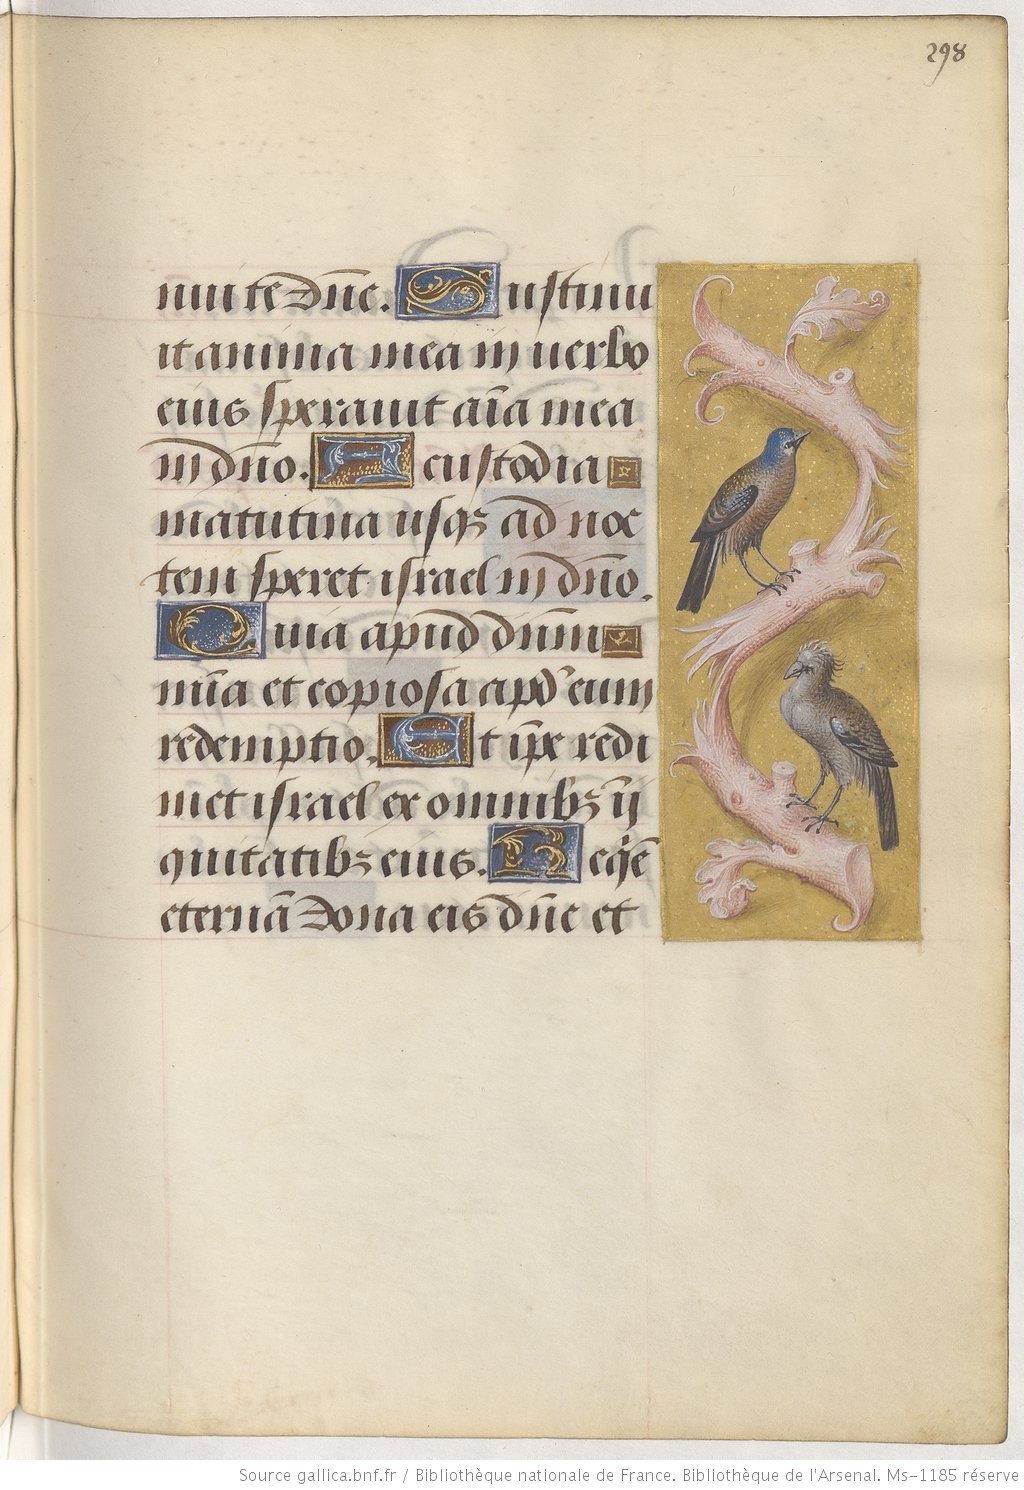 298
nui te dn̄e. Sustinu
it anima mea in uerbo
eius sperauit aīa mea
in dn̄o. A custodia
matutina usqꝫ ad noc
tem speret israel in dn̄o.
Quia apud dn̄m
mīa et copiosa apd' eum
redemptio. Et ip̄e redi
met israel ex omnibꝫ ī
quitatibꝫ eius. Reqiē
eternā dona eis dn̄e et
Source gallica.bnf.fr / Bibliothèque nationale de France. Bibliothèque de l'Arsenal. Ms-1185 réserve